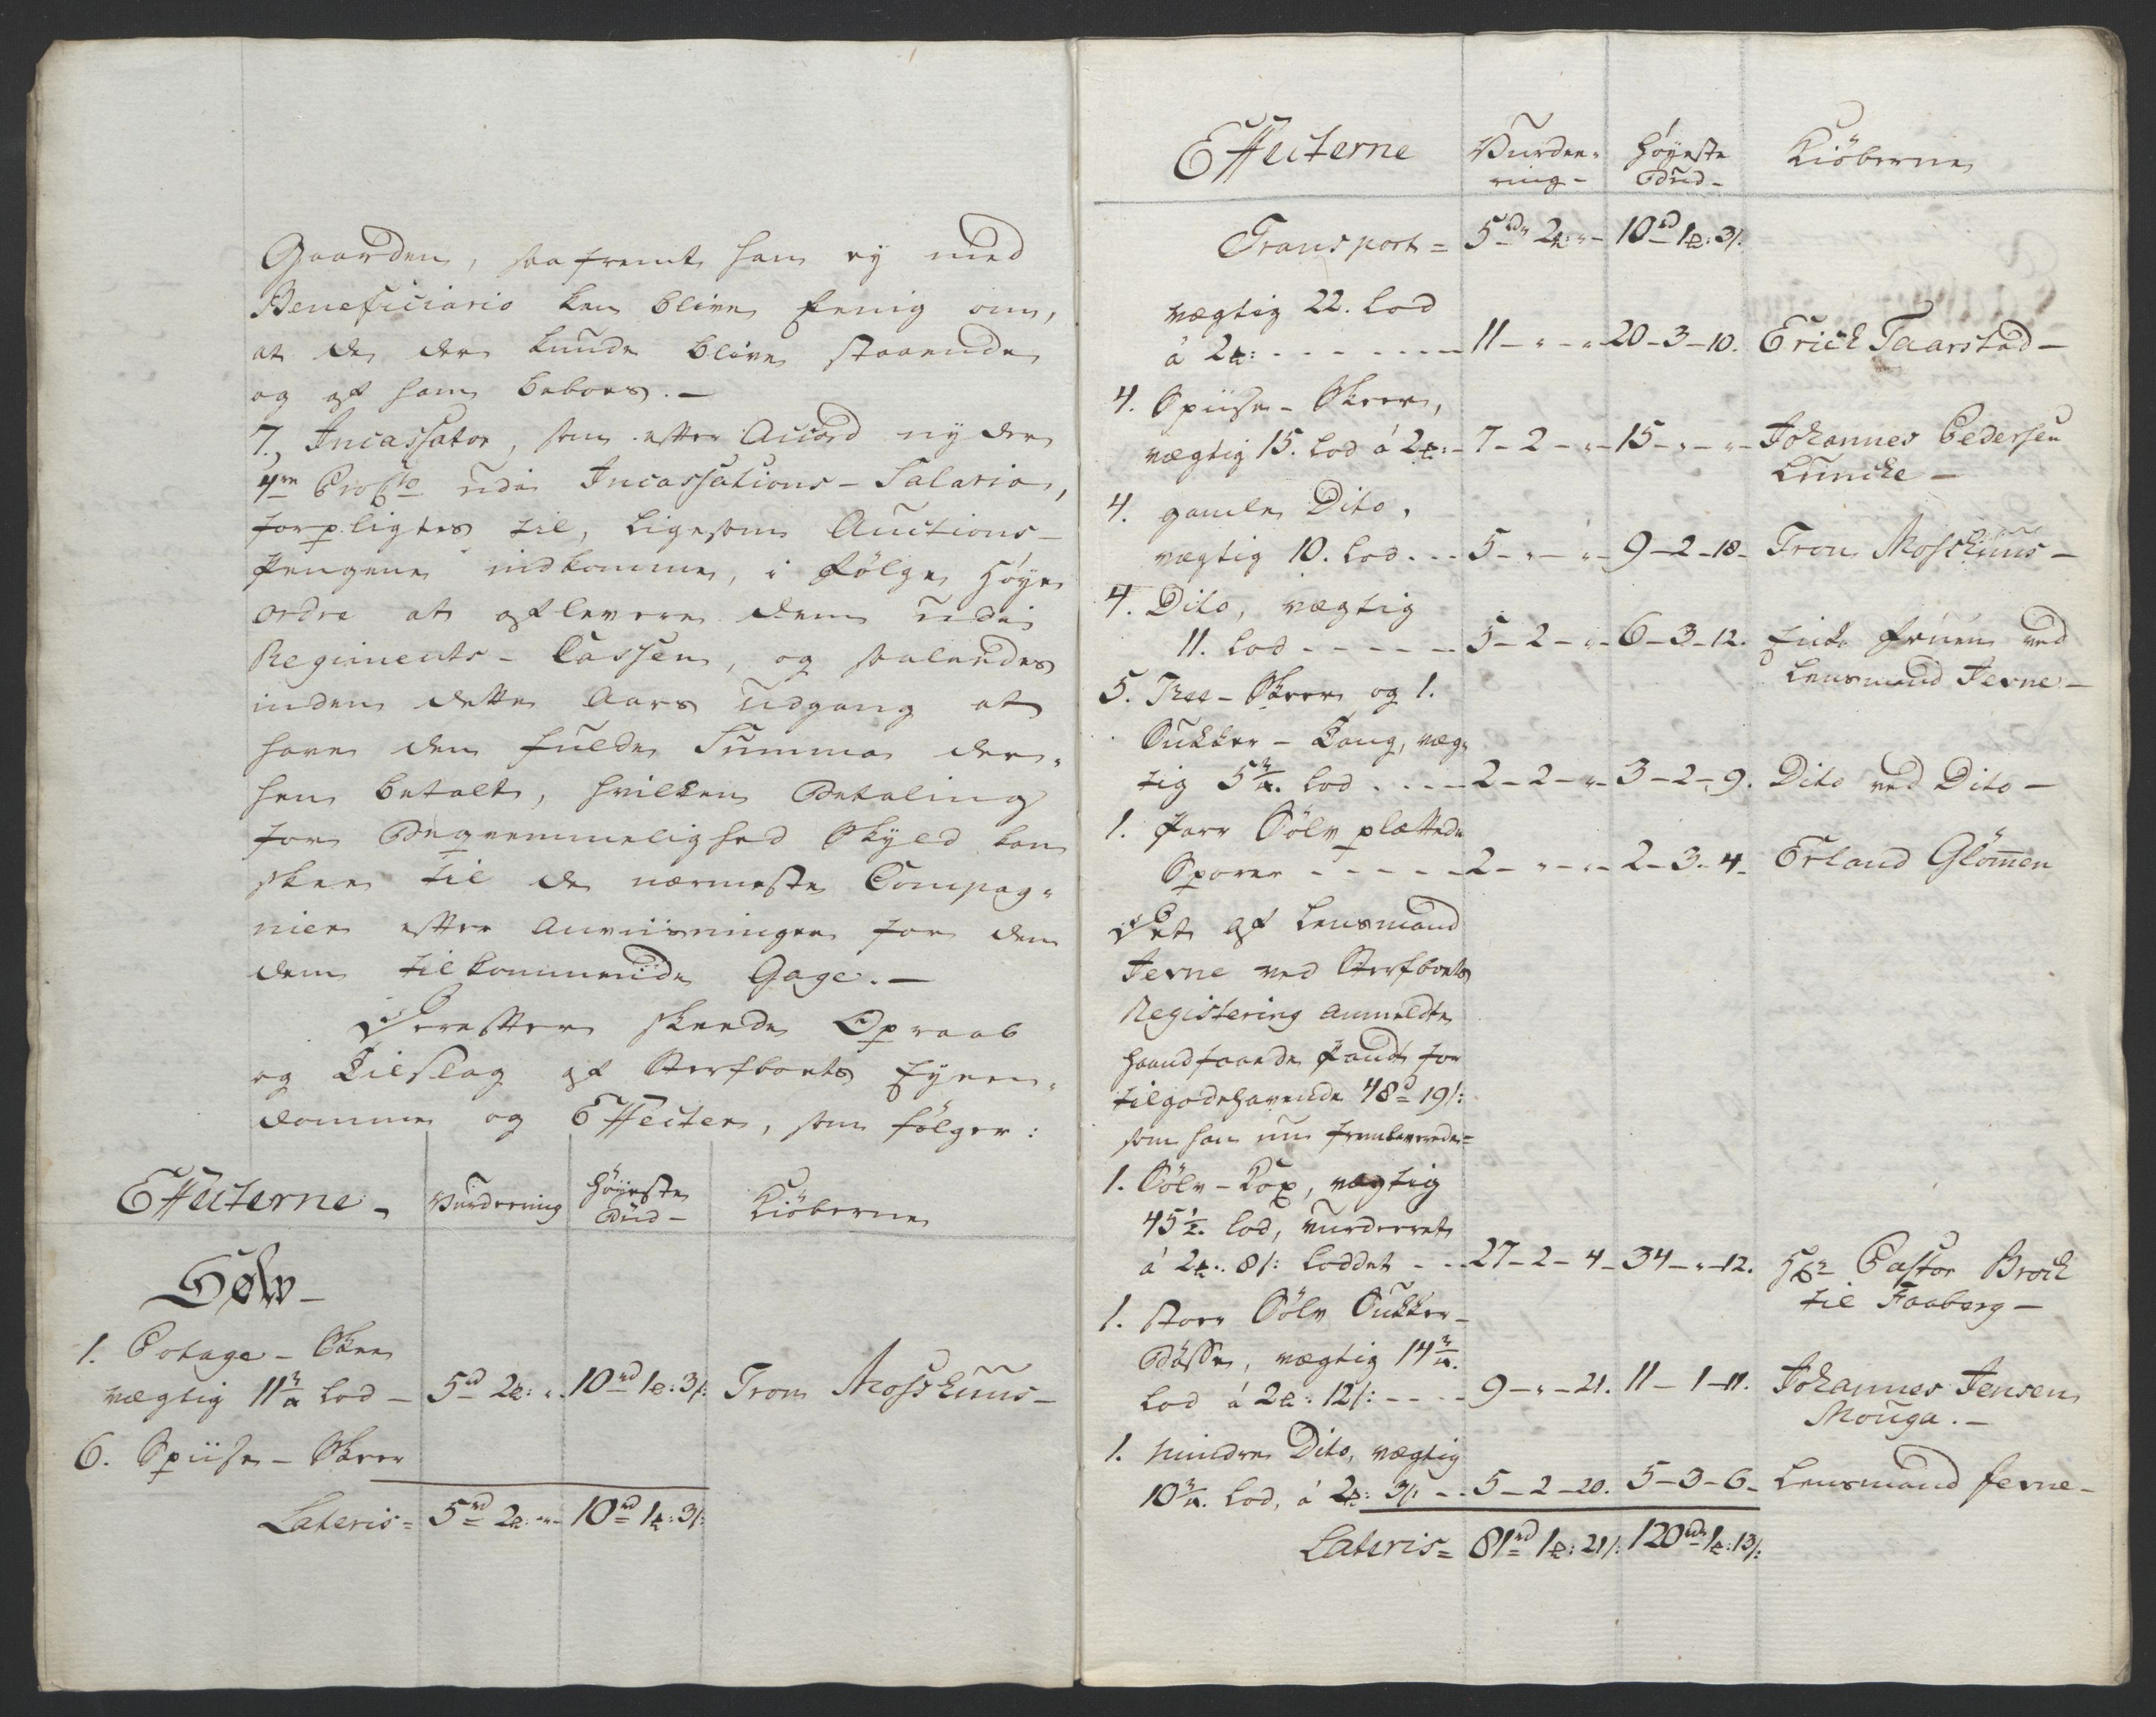 Gaarden, saafremt han ey med
Beneficiario kan blive Eenig om,
at de der kunde blive staaende
og af ham beboes. —
7., Incassator, som efter Accord nyder
4re ProCto udi Incassations-Salario,
forpligtes til, ligesom Auctions-
Pengene indkomme, i Følge Høye
Ordre at aflevere dem udi
Regiments-Cassen, og saaledes
inden dette Aars Udgang at
have den fulde Summa der-
hen betalt, hvilken Betaling
for Beqvemmelighed Skyld kan
skee til de nærmeste Compag-
nier efter Anviisninger for den
dem tilkommende Gage. —
Derefter skeede Opraab
og Tilslag af Sterfboets Eyen-
domme og Effecter, som følger:
Effecterne - Vurdering Høyeste Bud - Kiöberne
Sølv —
1. Potage-Skee
vægtig 11 3/4 Lod - 5rd 2 : " 10rd 1 : 3/: Tron Moshuus —
6. Spiise-Skeer
Lateris = 5rd 2 : " - 10rd 1 : 3/:
Effecterne Vurdee-ring - Høyeste Bud - Kiöberne
Transport = 5rd 2 : " - 10rd 1 : 3/:
vægtig 22. Lod
á 2 : - - - - 11 - " - " 20-3-10. Erick Taarstad —
4. Spiise-Skeer,
vægtig 15. Lod á 2 : - 7-2-" - 15-"-" - Johannes Pedersen
Luncke —
4. gamle Dito,
vægtig 10. Lod. - - 5-"-" - 9-2-18 - Tron Moshuus —
4. Dito, vægtig
11. Lod - - - - - 5-2-" - 6-3-12. Enke Fruen ved
Lensmand Jevne —
5. Thee-Skeer og 1.
Sukker-Tang, væg-
tig 5 3/4. Lod - - - 2-2-" - 3-2-9. Dito ved Dito —
1. Parr Sölv plettede
Sporer - - - - - 2-"-" - 2-3-4 - Erland Glömmen
Det af Lensmand
Jevne ved Sterfboets
Registering anmeldte
haandfaaede Pandt for
tilgodehavende 48rd 19/:
som han nu fremleverede =
1. Sölv-Kop, vægtig
45 1/2. Lod, vurderet
á 2 : 8/: Loddet - - 27-2-4 - 34-"-12. Hr Pastor Brock
til Faaberg —
1. stoer Sölv Sukker-
Bösse, vægtig 14 3/4.
Lod á 2 : 12/: - - - 9-"-21. 11-1-11. Johannes Jensen
Mouga. —
1. mindre Dito, vægtig
10 3/4. Lod, á 2 : 3/: - - 5-2-20. 5-3-6 - Lensmand Jevne —
Lateris = 81rd 1 : 21/: 120rd 1 : 13/: